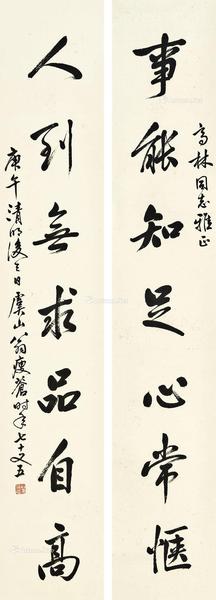 高林同志雅正
事能知足心常愜
人到無求品自高
庚午清明後三日虞山翁瘦蒼時年七十又五